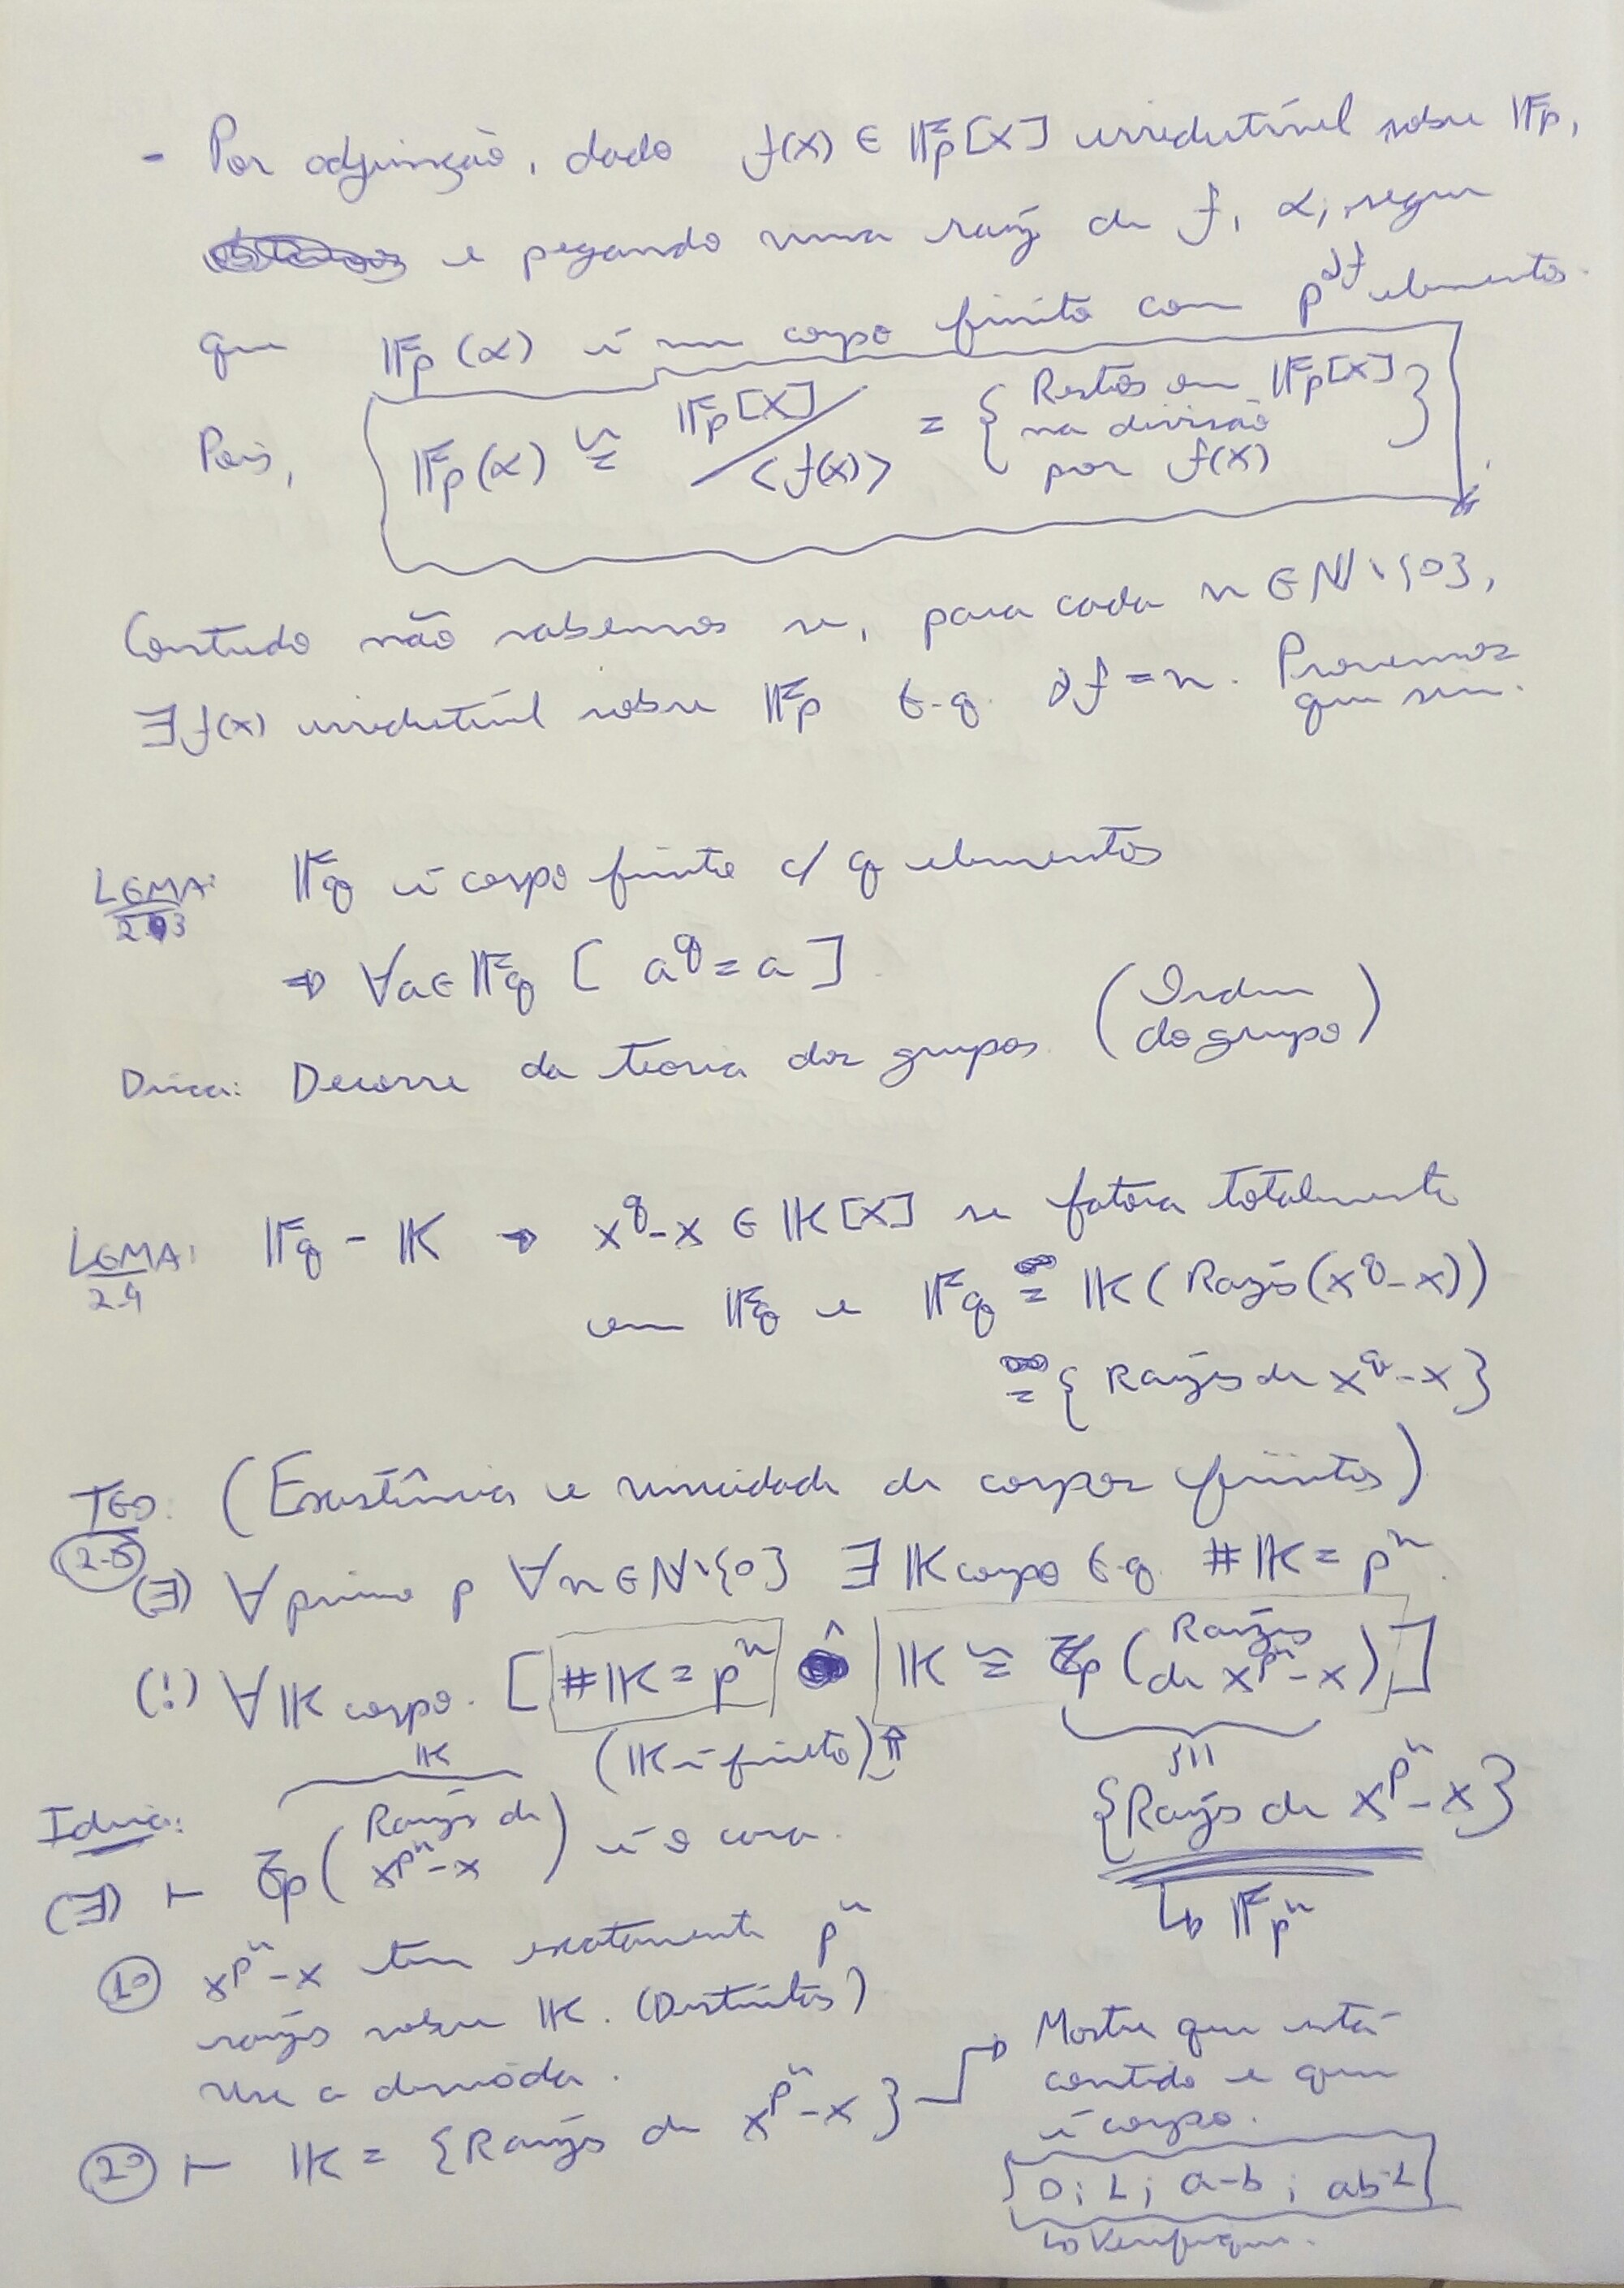 - Por adjunção, dado f(x) ∈ 𝔽p[X] irredutível sobre 𝔽p,
e pegando uma raiz de f, α, segue
que 𝔽p(α) é um corpo finito com p^∂f elementos.
Pois, 𝔽p(α) ≅ 𝔽p[X]/<f(x)> = { Restos em 𝔽p[X] na divisão por f(x) }
Contudo não sabemos se, para cada n ∈ ℕ\{0},
∃ f(x) irredutível sobre 𝔽p t.q. ∂f = n. Provemos que sim.
LEMA: 2.3 𝔽q é corpo finito c/ q elementos
⇒ ∀a ∈ 𝔽q [ a^q = a ]
Dica: Decorre da teoria dos grupos. (Ordem do grupo)
LEMA: 2.4 𝔽q - 𝕂 ⇒ x^q - x ∈ 𝕂[X] se fatora totalmente
em 𝔽q e 𝔽q = 𝕂(Raízes(x^q - x))
= { Raízes de x^q - x }
TEO. 2.5 (Existência e unicidade de corpos finitos)
(∃) ∀ primo p ∀n ∈ ℕ\{0} ∃ 𝕂 corpo t.q. #𝕂 = p^n.
(!) ∀𝕂 corpo. [ #𝕂 = p^n 𝕂 ≅ ℤp ( Raízes de x^p^n - x ) ]
(𝕂 é finito) ⇑
{Raízes de x^p^n - x}
↳ 𝔽p^n
Ideia: 𝕂
(∃) ⊢ ℤp ( Raízes de x^p^n - x ) é o cara.
1º x^p^n - x tem exatamente p^n
raízes sobre 𝕂. (Distintas)
Use a derivada.
2º ⊢ 𝕂 = {Raízes de x^p^n - x}
↳ Mostre que está
contido e que
é corpo.
0; 1; a-b; ab^-1
↳ Verifique.